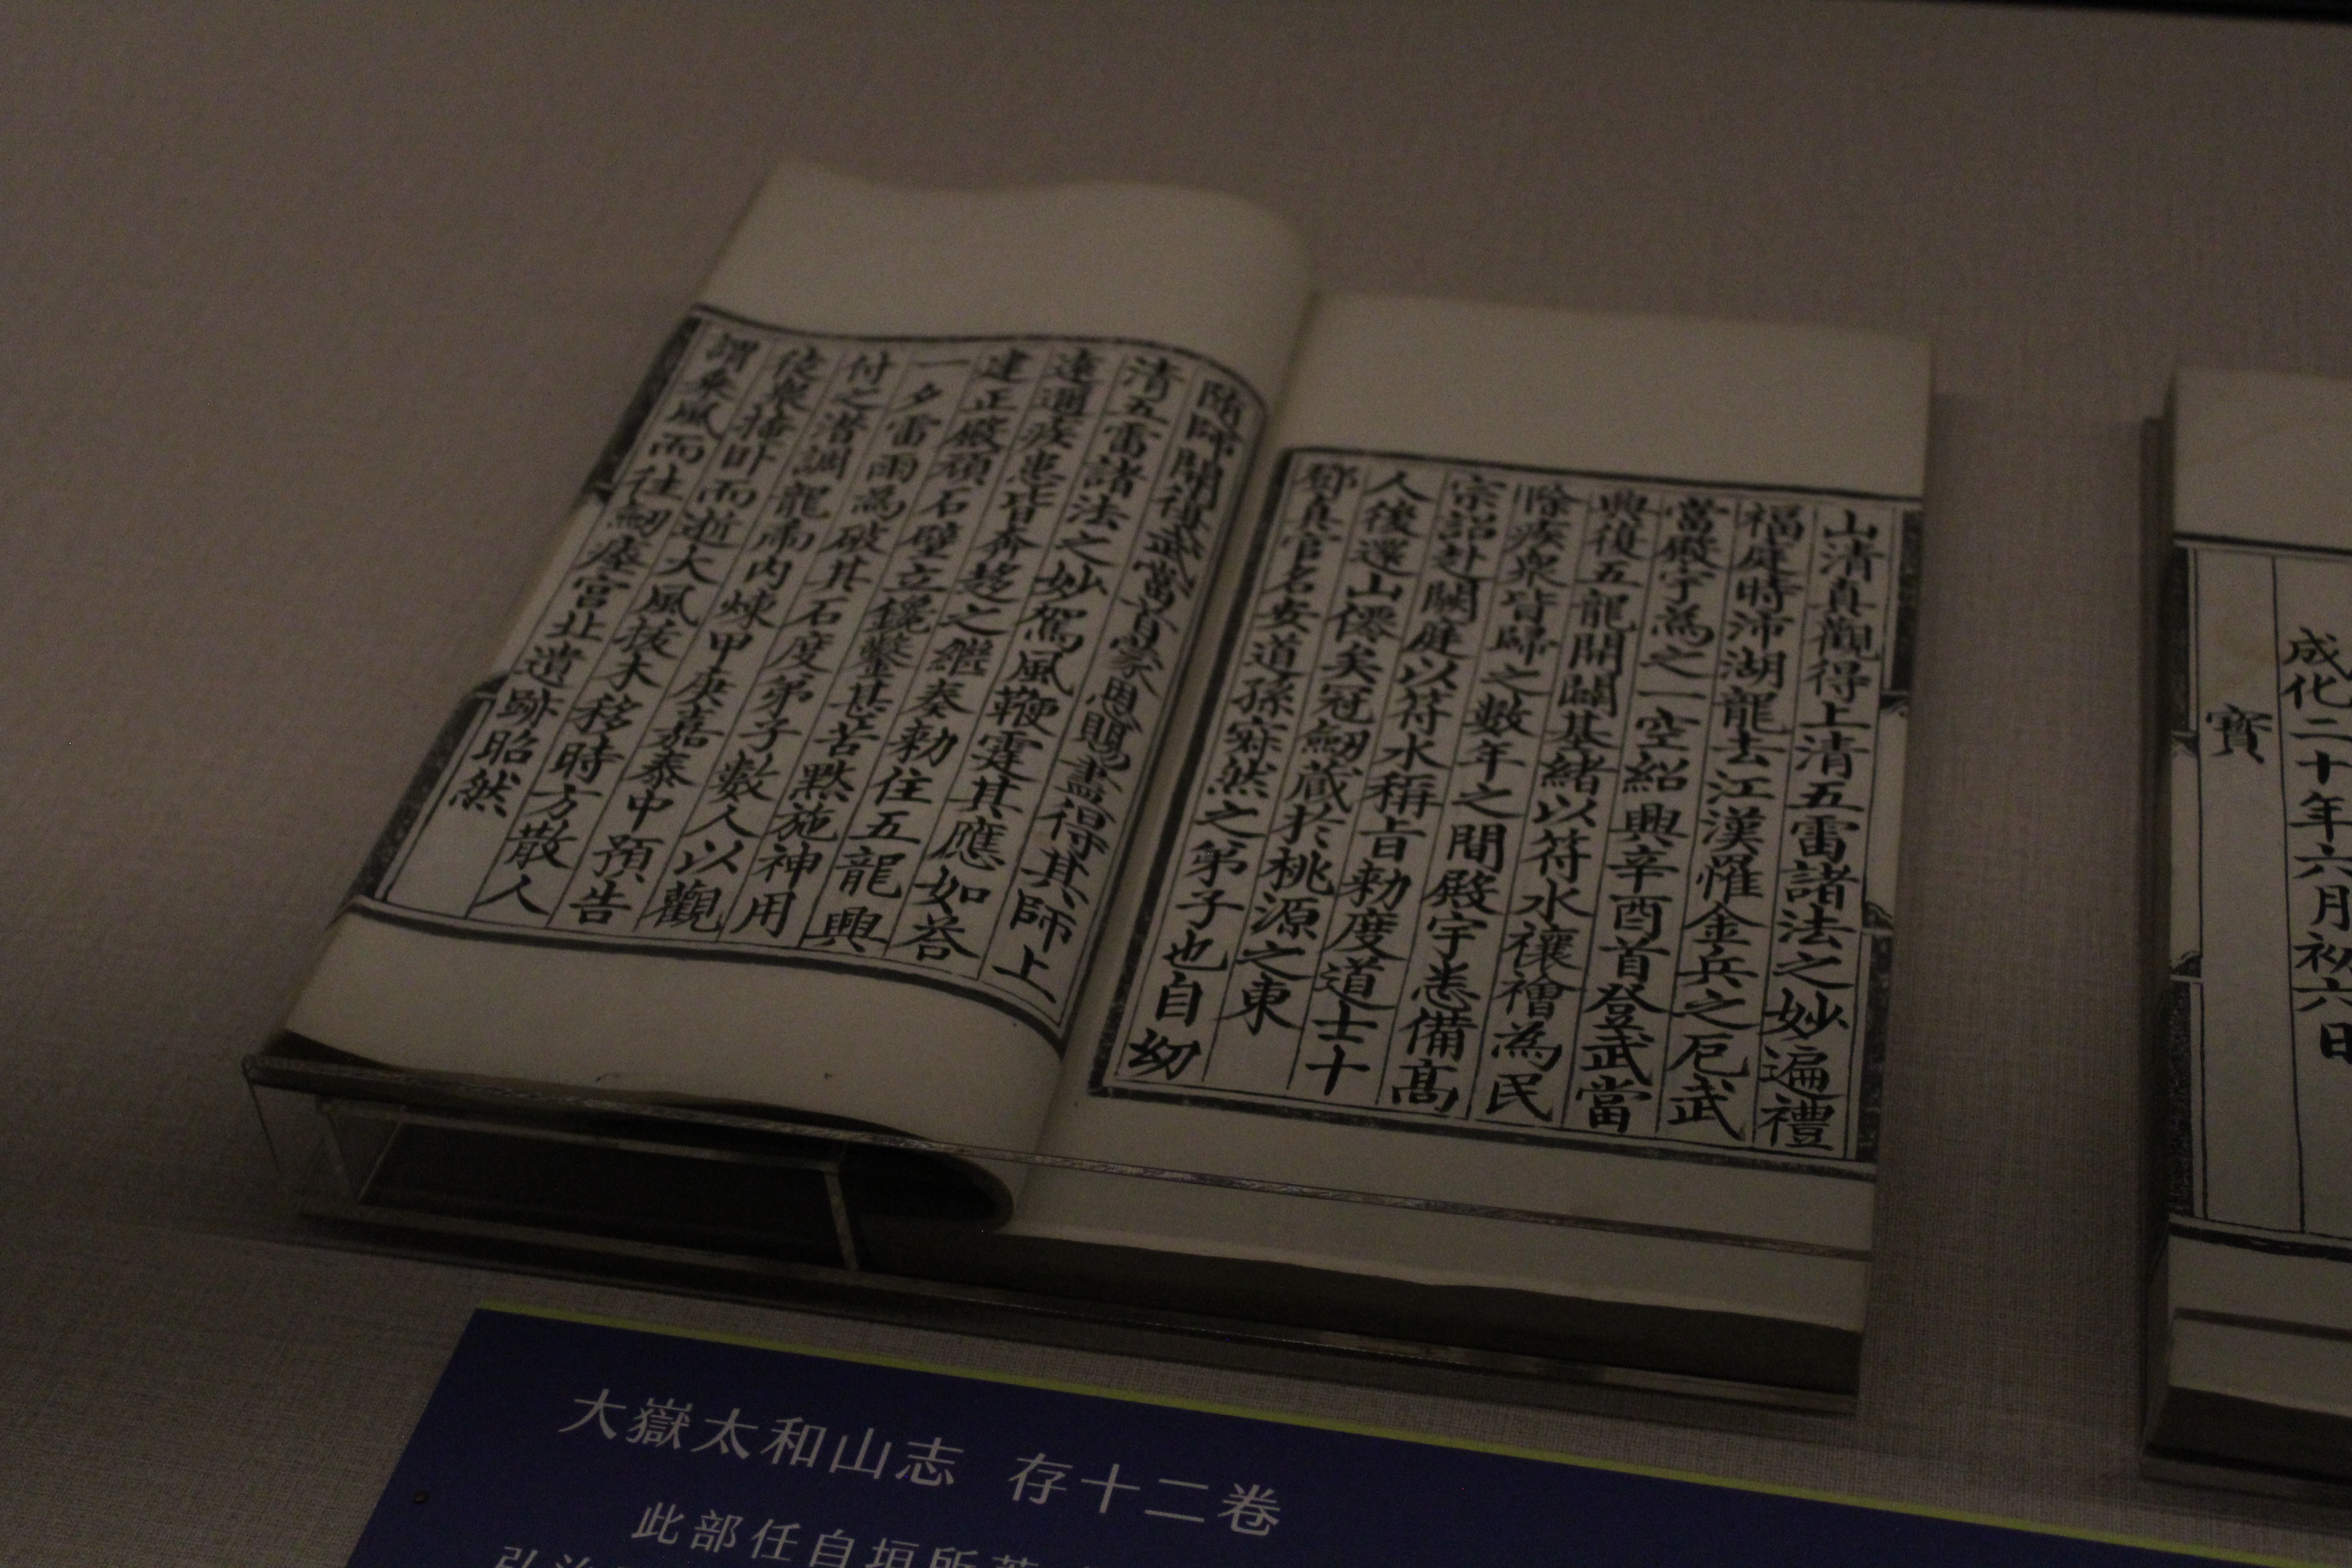 山清真觀得上清五雷諸法之妙遍禮
福庭時沛湖龍去江漢罹金兵之厄武
當殿宇為之一空紹興辛酉首登武當
興復五龍開闢基緒以符水禳禬為民
除疾衆皆歸之數年之間殿宇悉備髙
宗詔赴闕庭以符水稱旨勑度道士十
人後還山僊矣冠劒蔵扵桃源之東
鄧真官名安道孫寂然之弟子也自幼
隨師開復武當首蒙恩賜盡得其師上
清五雷諸法之妙駕風鞭霆其應如荅
遠邇疾患皆奔趍之繼奏勑住五龍興
建正殿頑石壁立鑱鑿甚苦黙施神用
一夕雷雨為破其石度弟子數人以觀
付之潜調龍虎内煉甲庚嘉泰中預告
徒衆捲卧而逝大風拔木移時方散人
謂乘風而往劒瘞宫北遺跡昭然
成化二十年六月初六日
寳
大嶽太和山志 存十二卷
此部任自垣所